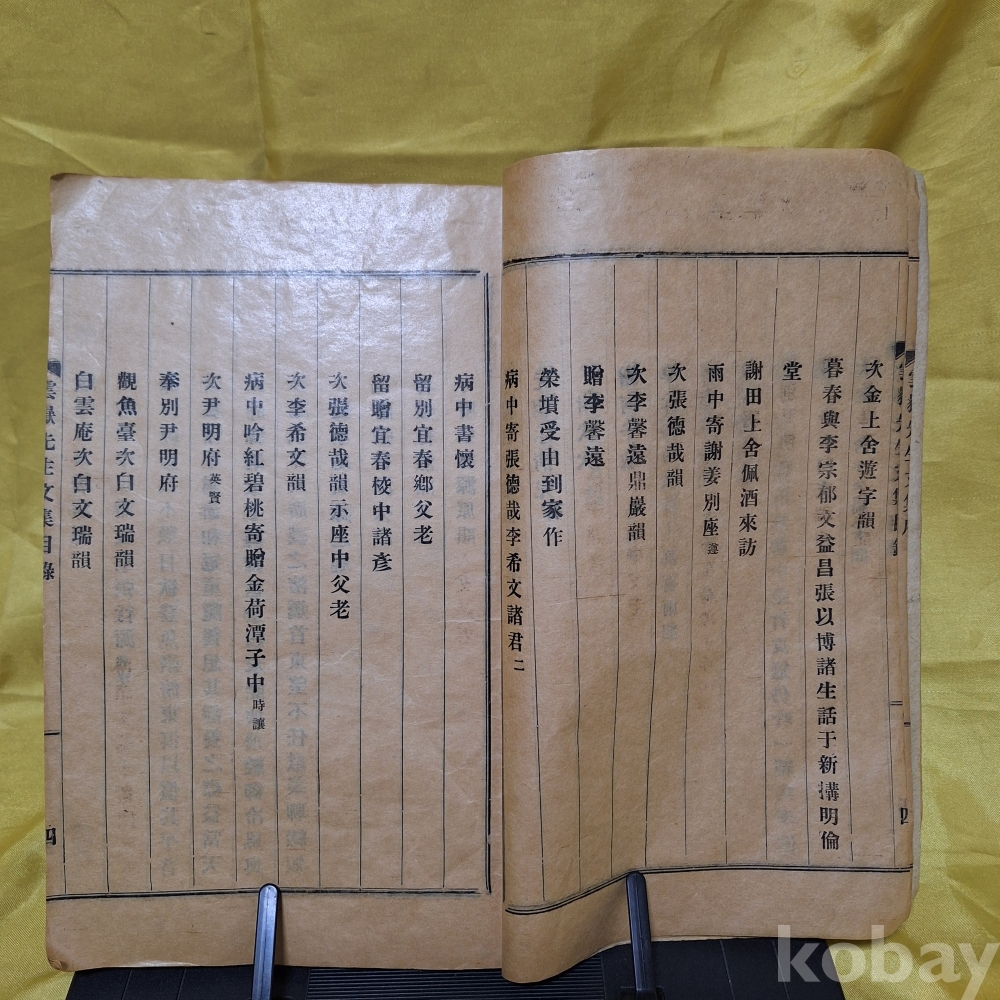 次金上舍遊字韻
暮春與李宗郁文益昌張以博諸生話于新搆明倫
堂
謝田上舍佩酒來訪
雨中寄謝姜別座
次張德哉韻
次李馨遠鼎巖韻
贈李馨遠
榮墳受由到家作
病中寄張德哉李希文諸君二
四
病中書懷
留別宜春鄉父老
留贈宜春校中諸彥
次張德哉韻示座中父老
次李希文韻
病中吟紅碧桃寄贈金荷潭子中時讓
次尹明府英賢
奉別尹明府
觀魚臺次白文瑞韻
白雲庵次白文瑞韻
先生文集目錄
四
kobay